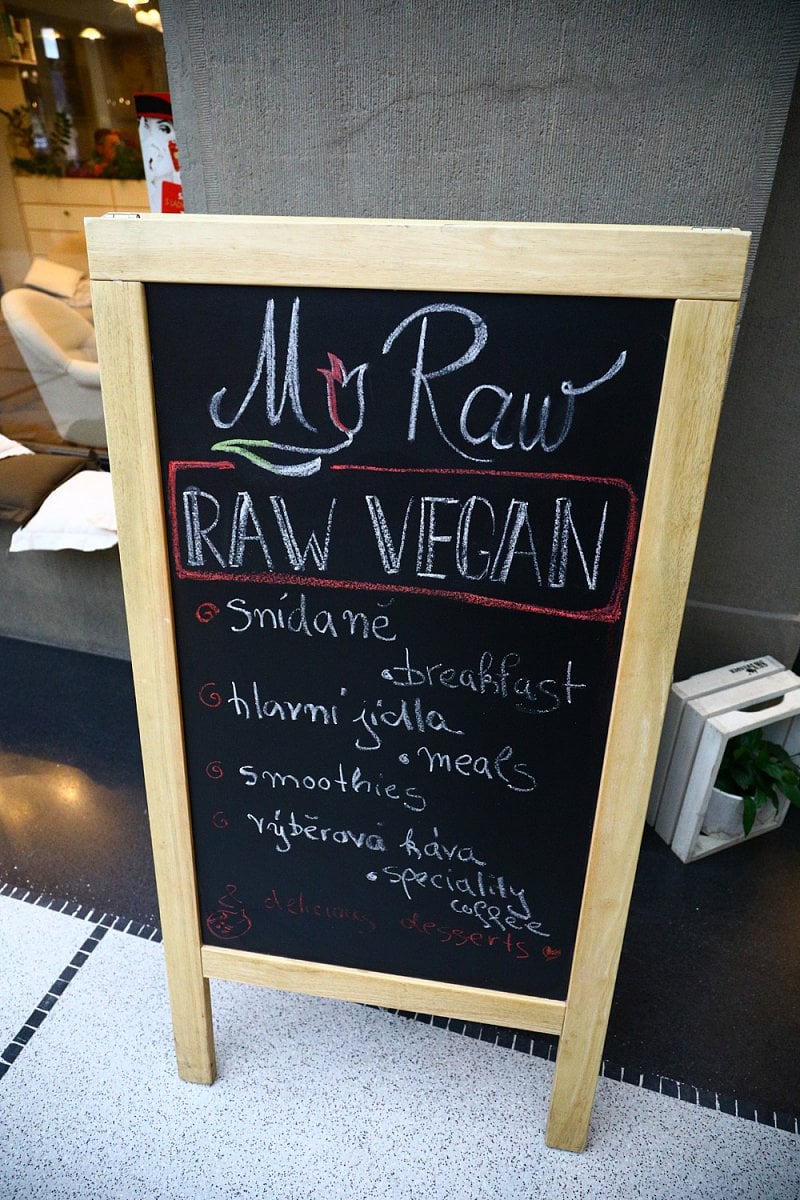 My Raw
RAW VEGAN
snídaně
•breakfast
hlavní jídla
•meals
smoothies
výběrová káva
•speciality
coffee
& delicious desserts